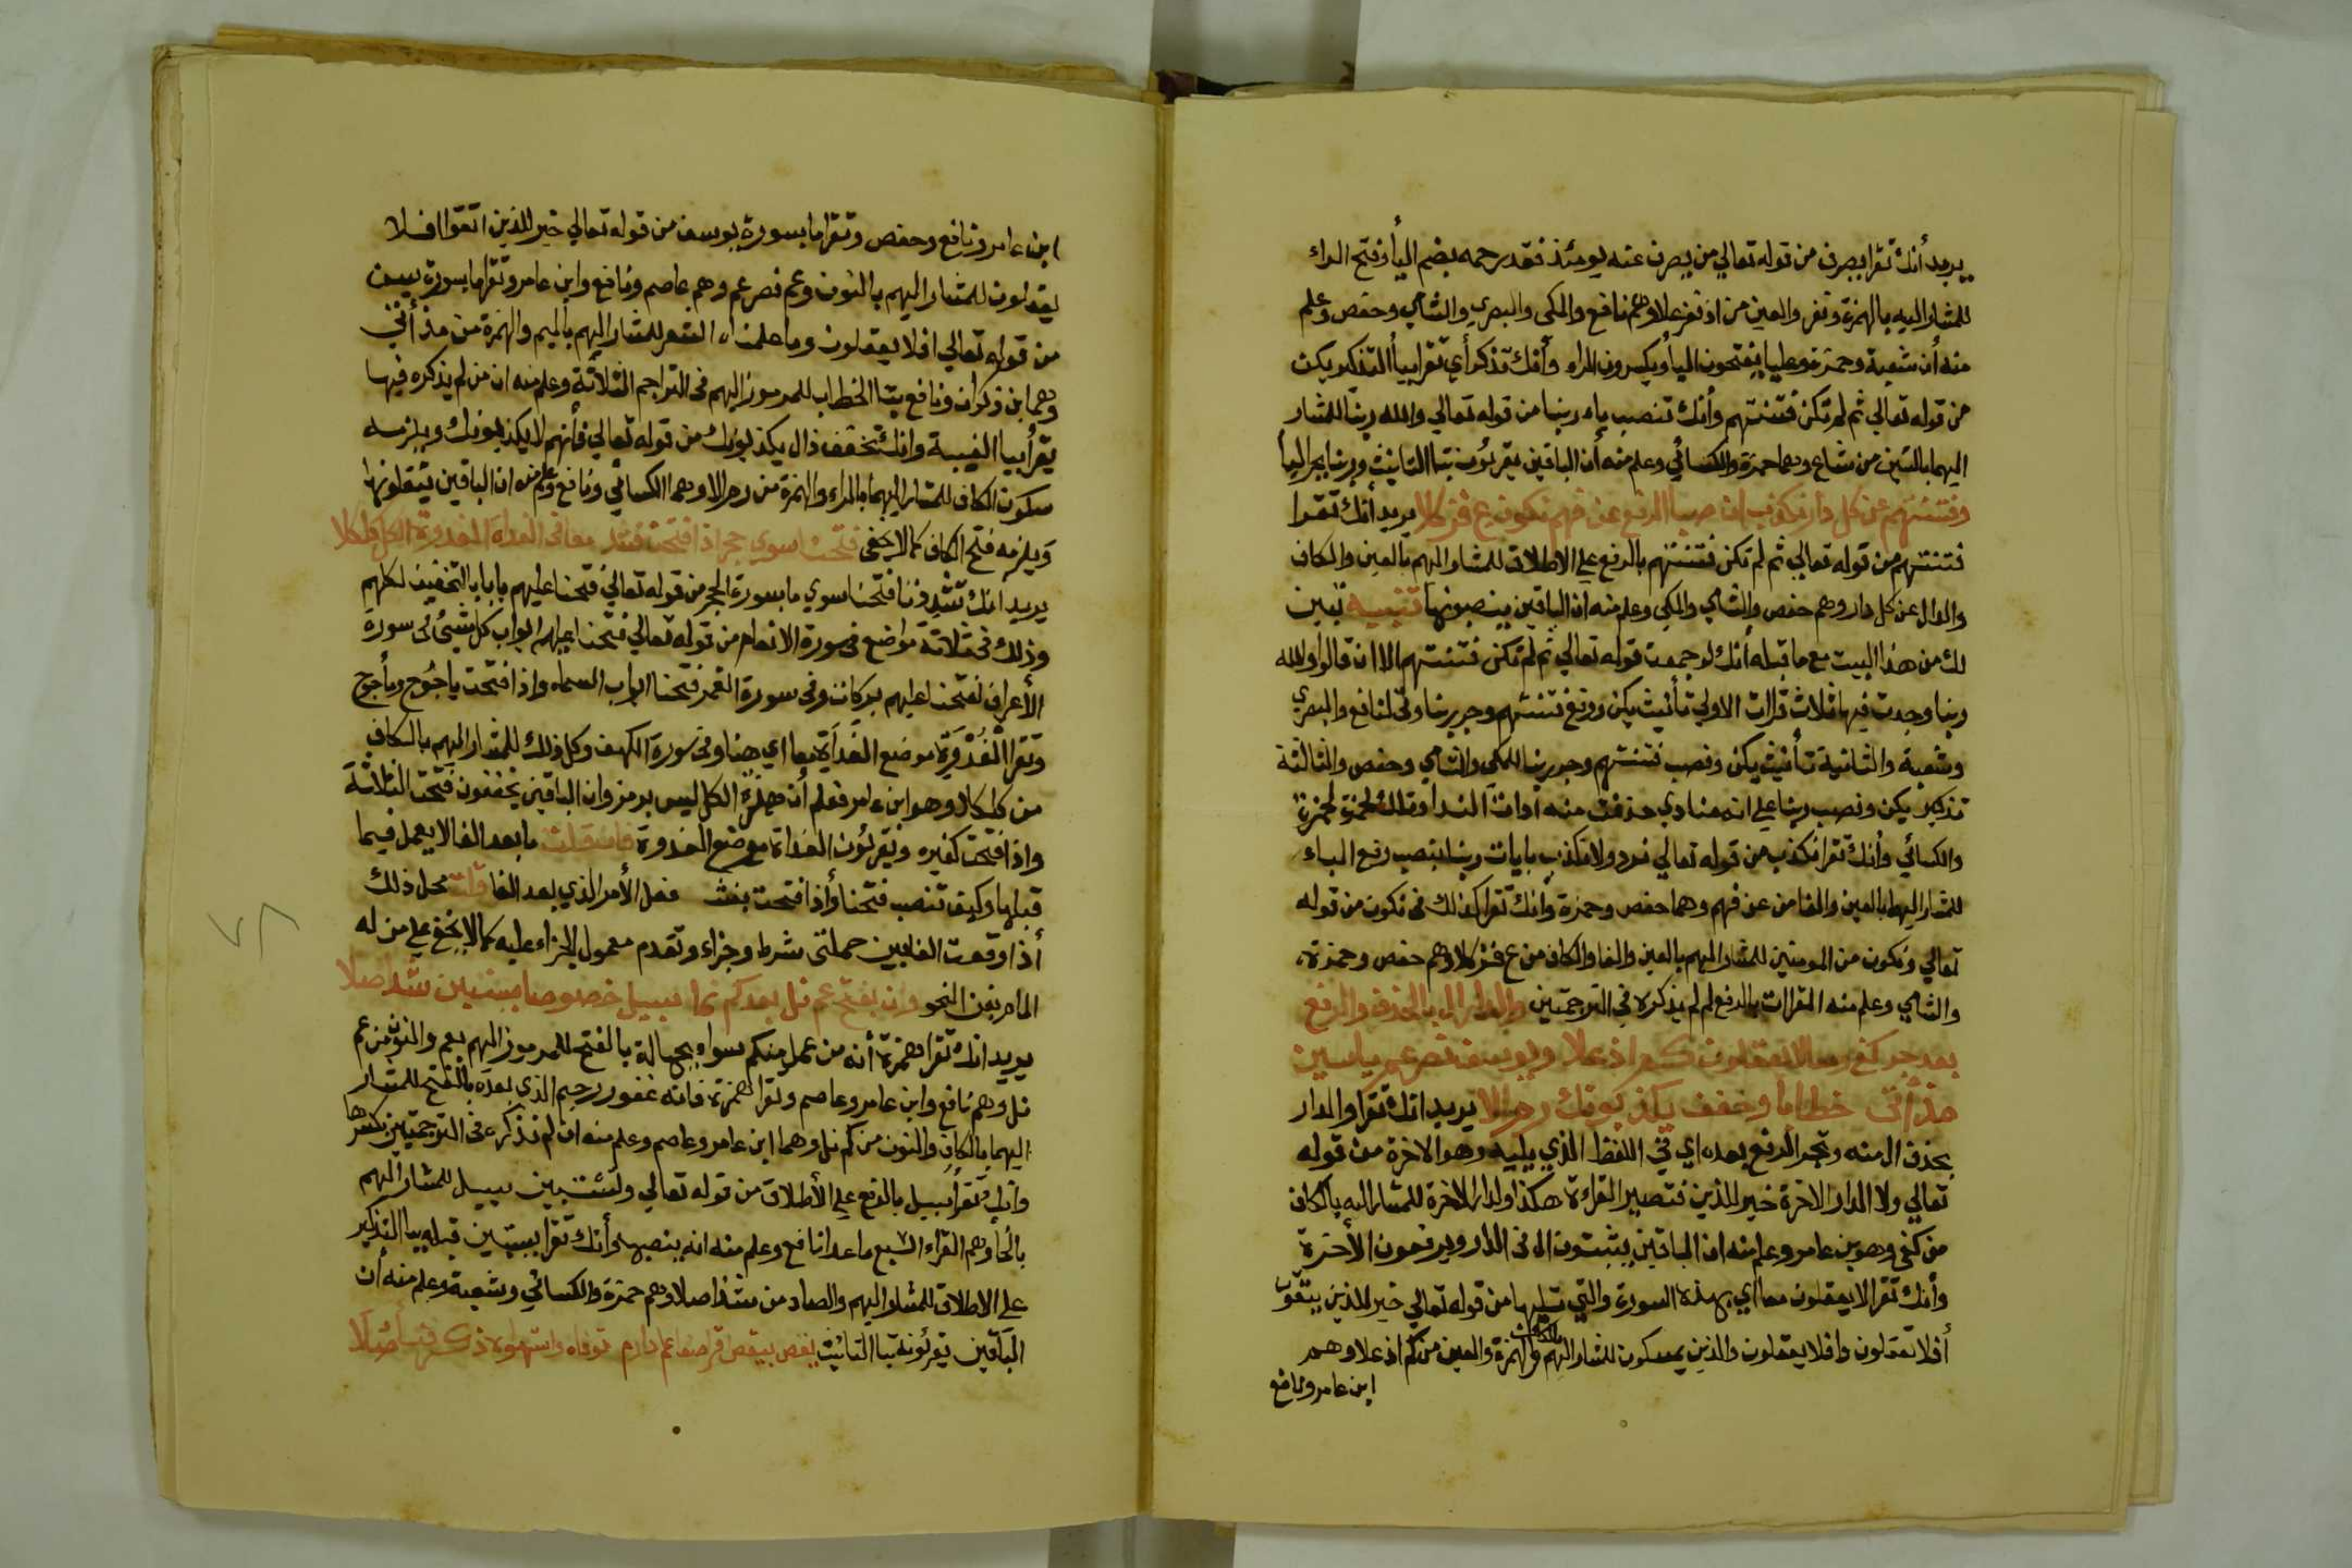 يريد أنك تقرا بصرف من قوله تعالي من يصرف عنه يومئذ فقد رحمه بضم اليأ وفتح الراء
للمشار اليه بالهمزة ونفر والعين من اذ نفر علا وهم نافع والمكى والبصري والشامي وحفص وعلم
منه أن شعبة وحمزة وعليا يفتحون اليأ ويكسرون الراء وأنك تذكر أي تقرا بيأ التذكير يكن
من قوله تعالي ثم لم تكن فتنتهم وأنك تنصب باء ربنا من قوله تعالي والله ربنا للمشار
اليهما بالشين من شاع وهما حمزة والكسائي وعلم منه أن الباقين يقرئون بتا التانيث وربنا بجر البأ
وفتنتهم عن كل دار نكذب انصبا الرفع عن فهم نكون ع فز كلا يريد أنك تقرا
فتنتهم من قوله تعالي ثم لم تكن فتنتهم بالرفع على الاطلاق للمشار اليهم بالعين والكاف
والدال عن كل دار وهم حفص والشامي والمكي وعلم منه ان الباقين ينصبونها تنبيه تبين
لك من هذا البيت مع ما قبله أنك لو جمعت قوله تعالي ثم لم تكن فتنتهم الا ان قالوا والله
ربنا وجدت فيها ثلاث قرات الاولي تأنيث يكن ورفع فتنتهم وجر ربنا وهي لنافع والبصري
وشعبة والثانية تأنيث يكن ونصب فتنتهم وجر ربنا للمكي والشامي وحفص والثالثة
تذكير يكن ونصب ربنا على انه منادي حذفت منه ادات الندا وتلك لحمزة
والكسائي وأنك تقرا نكذب من قوله تعالي نرد ولا نكذب بايات ربنا بنصب رفع الباء
للمشار اليهما بالعين والفا من عن فهم وهما حفص وحمزة وانك تقرا كذلك في نكون من قوله
تعالي ونكون من المومنين للمشار اليهم بالعين والفا والكاف من ع فز كلا وهم حفص وحمزة
والشامي وعلم منه القرات بالرفع لم لم يذكره في الترجمتين والدار ال بالحذف والرفع
بعد جر كفى معا لا تعقلون كم اذ علا ويوسف نصر عم ياسين
مذ أتى خطابا وخفف يكذبونك رحر الا يريد انك تقرا والدار
بحذف ال منه وتجر الرفع بعده اي في اللفظ الذي يليه وهو الاخرة من قوله
تعالي ولا الدار الاخرة خير للذين فتصير القراءة هكذا ولدار الاخرة للمشار اليه بالكاف
من كفي وهو بن عامر وعلم منه ان الباقين يثبتون ال في الدار ويرفعون الأخرة
وأنك تقرا لا يعقلون معا اي بهذه السورة والتي تليها من قوله تعالي خير للذين يتقون
أفلا تعقلون وافلا يعقلون والذين يمسكون للمشار اليهم بالكاف والهمزة والعين من كم اذ علا وهم
ابن عامر ونافع
ابن عامر ونافع وحفص وتقرا ما بسورة يوسف من قوله تعالي خير للذين اتقوا افلا
يعقلون للمشار اليهم بالنون وعم نصر عم وهم عاصم ونافع وابن عامر وتقرا ما بسورة يس
من قوله تعالي افلا يعقلون وما علمناه الشعر للمشار اليهم بالميم والهمزة من مذ أتى
وهما بن ذكوان ونافع بتا الخطاب للمرموز اليهم في التراجم الثلاثة وعلم منه ان من لم يذكره فيها
يقرأ بيا الغيبة وانك تخفف ذال يكذبونك من قوله تعالي فأنهم لا يكذبونك ويلزمه
سكون الكاف للمشار اليهما بالراء والهمزة من رحر الا وهما الكسائي ونافع وعلم منه ان الباقين يثقلونها
ويلزمه فتح الكاف كما لا يخفى فتحنا سوى حجر اذا فتحت فثقد معا في الغداة الغدوة الكل كلا
يريد انك تشدد تا فتحنا سوي ما بسورة الحجر من قوله تعالي فتحنا عليهم بابا بالتخفيف لكلهم
وذلك في ثلاثة مواضع في سورة الانعام من قوله تعالي فتحنا عليهم ابواب كل شيئ وفى سورة
الأعراف لفتحنا عليهم بركات وفى سورة القمر ففتحنا ابواب السماء واذا فتحت ياجوج ومأجوج
وتقرا الغدوة موضع الغداة معا اي هنا وفى سورة الكهف وكل ذلك للمشار اليهم بالكاف
من كلا وهو ابن عامر فعلم أن همزة الكل ليس برمز وان الباقين يخففون فتحت الثلاثة
واذا فتحت كغيره ويقرئون الغداة موضع الغدوة فان قلت ما بعد الفا لا يعمل فيما
قبلها وكيف تنصب فتحنا وأذا فتحت بفعل الأمر الذي بعد الفا قلت محل ذلك
أذا وقعت الفا بين حملتى شرط وجزاء وتقدم معمول الجزاء عليه كما لا يخفى على من له
المام بفن النحو وان بفتح عم نل بعد كم نما سبيل خصوصا يستبين شذا صلا
يريد انك تقرا همزة أنه من عمل منكم سواء بجهالة بالفتح للمرموز اليهم بعم والنون من عم
نل وهم نافع وابن عامر وعاصم وتقرا همزة فانه غفور رحيم الذي بعده بالفتح للمشار
اليهما بالكاف والنون من كم نل وهما ابن عامر وعاصم وعلم منه ان لم نذكره فى الترجمتين يكسرها
وانك تقرأ سبيل بالرفع على الأطلاق من قوله تعالي ولتستبين سبيل للمشار اليهم
بالخا وهم القراء السبع ما عدا نافع وعلم منه انه ينصبها وأنك تقرا يستبين قبله بيا التذكير
على الاطلاق للمشار اليهم والصاد من شذا صلا وهم حمزة والكسائي وشعبة وعلم منه أن
الباقين يقرئونه بتا التانيث يقص بيقض دارم توفاه واستهواه